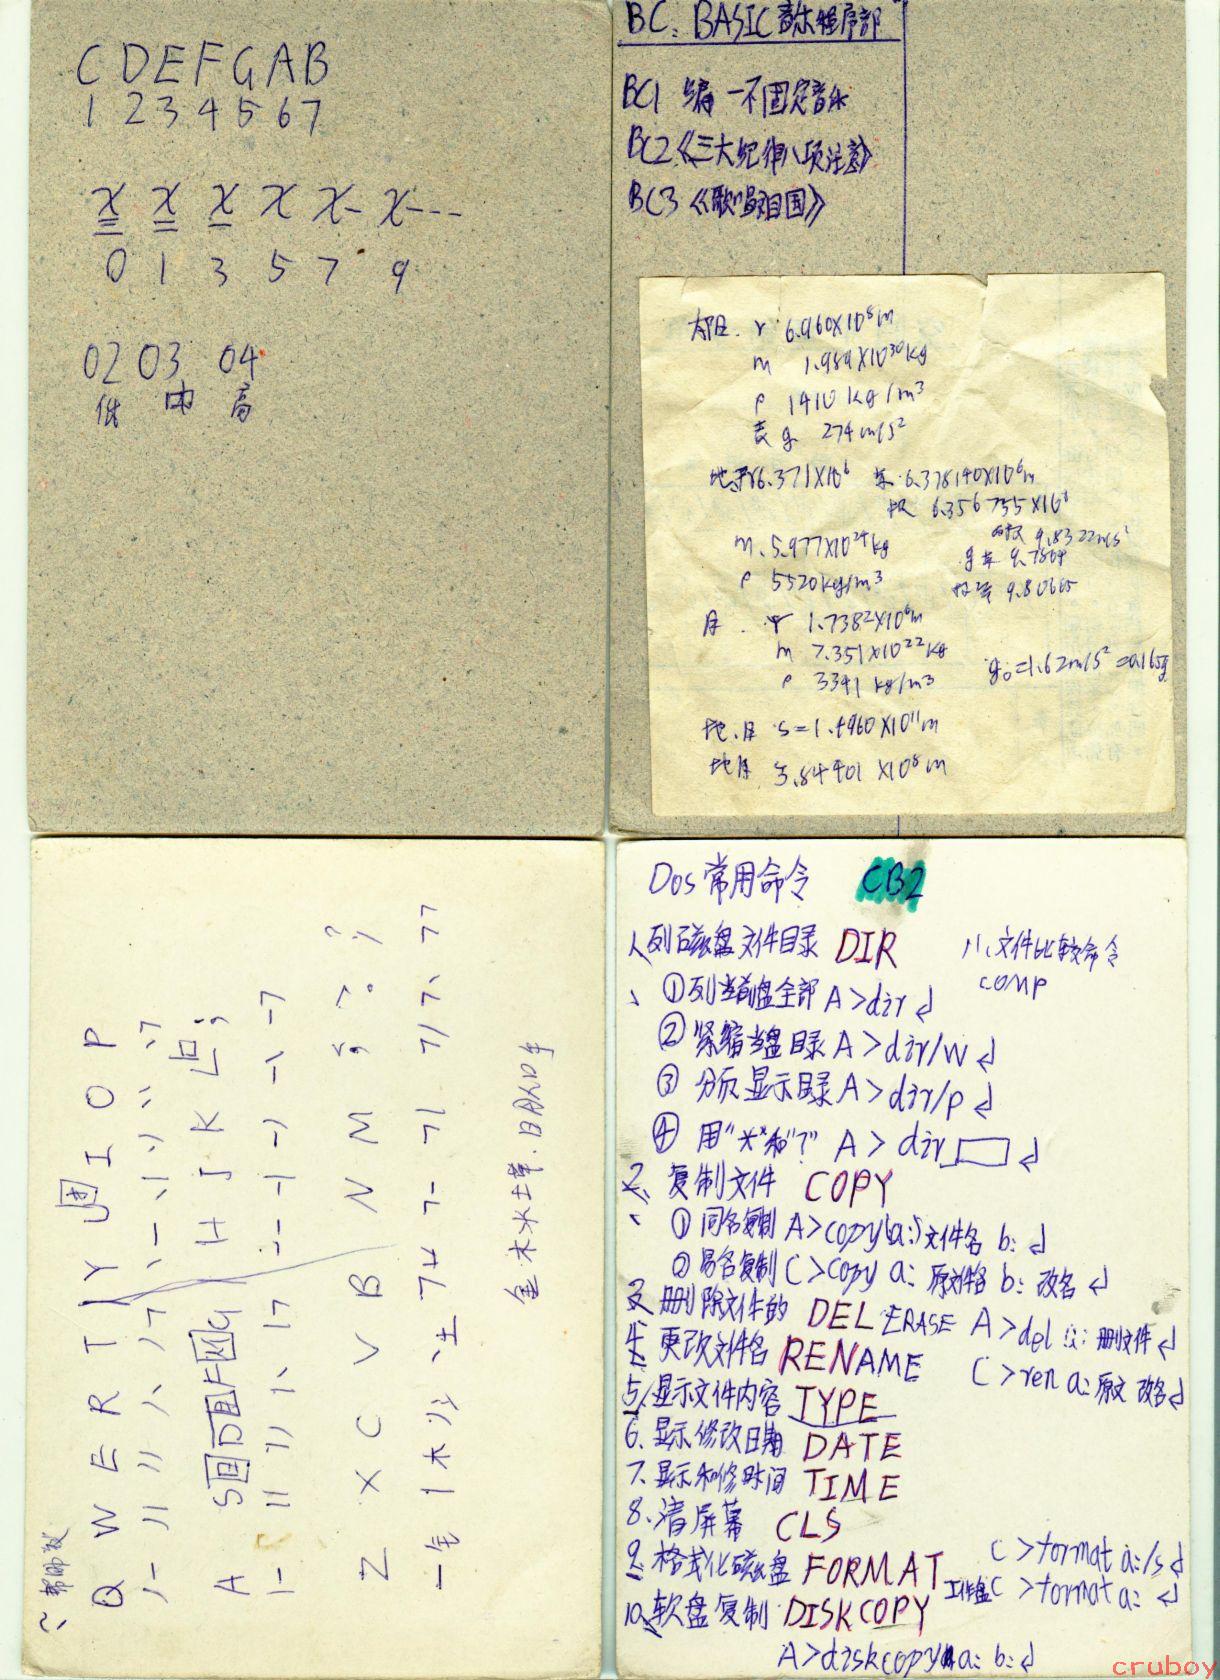 C D E F G A B
1 2 3 4 5 6 7
X X X X X- X---
0 1 3 5 7 9
02 03 04
低 中 高
BC: BASIC音乐程序部
BC1 编一不固定音乐
BC2《三大纪律八项注意》
BC3《歌唱祖国》
太阳. r 6.960X10⁸m
m 1.989X10³⁰kg
ρ 1410 kg/m³
表g 274m/s²
地球r6.371X10⁶ 赤.6.378140X10⁶m
极 6.356755X10⁶
m.5.977X10²⁴kg 9.8322m/s²
g赤 9.7804
ρ 5520kg/m³ 标准 9.80665
月. r 1.7382X10⁶m
m 7.351X10²²kg
g₀=1.62m/s²=0.165g
ρ 3341 kg/m³
地.日 S=1.4960X10¹¹m
地月 3.84401X10⁸m
Q W E R T Y U I O P
A S D F G H J K L ;
Z X C V B N M , . ?
金木水土
Dos常用命令 CB2
1、列磁盘文件目录 DIR
八、文件比较命令
comp
①列当前盘全部 A>dir↲
②紧缩当盘目录 A>dir/w↲
③分页显示目录 A>dir/p↲
④用"*"和"?" A>dir ↲
2、复制文件 COPY
①同名复制 A>copy(a:)文件名 b:↲
②易名复制 C>copy a:原文件名 b:改名↲
3、删除文件的 DEL ERASE A>del :删文件↲
4、更改文件名 RENAME C>ren a:原文 改名↲
5、显示文件内容 TYPE
6、显示修改日期 DATE
7、显示和修时间 TIME
8、清屏幕 CLS
9、格式化磁盘 FORMAT C>format a:/s↲
工作盘C>format a:↲
10、软盘复制 DISKCOPY
A>diskcopy a: b:↲
cruboy